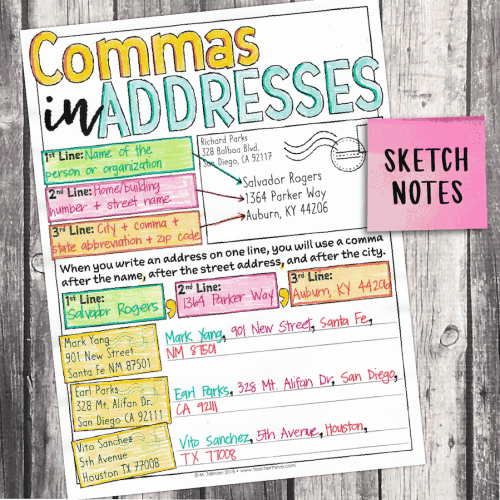 Commas
in ADDRESSES
1st Line: Name of the
person or organization
2nd Line: Home/building
number + street name
3rd Line: City + comma +
state abbreviation + zip code
Richard Parks
328 Balboa Blvd.
San Diego, CA 92117
Salvador Rogers
1364 Parker Way
Auburn, KY 44206
SKETCH
NOTES
When you write an address on one line, you will use a comma
after the name, after the street address, and after the city.
1st Line:
Salvador Rogers,
2nd Line:
1364 Parker Way,
3rd Line:
Auburn, KY 44206
Mark Yang
901 New Street
Santa Fe NM 87501
Mark Yang, 901 New Street, Santa Fe,
NM 87501
Earl Parks
328 Mt. Alifan Dr.
San Diego CA 92111
Earl Parks, 328 Mt. Alifan Dr, San Diego,
CA 92111
Vito Sanchez
5th Avenue
Houston TX 77008
Vito Sanchez, 5th Avenue, Houston,
TX 77008
© M. Tallman 2018 • www.teacherthrive.com